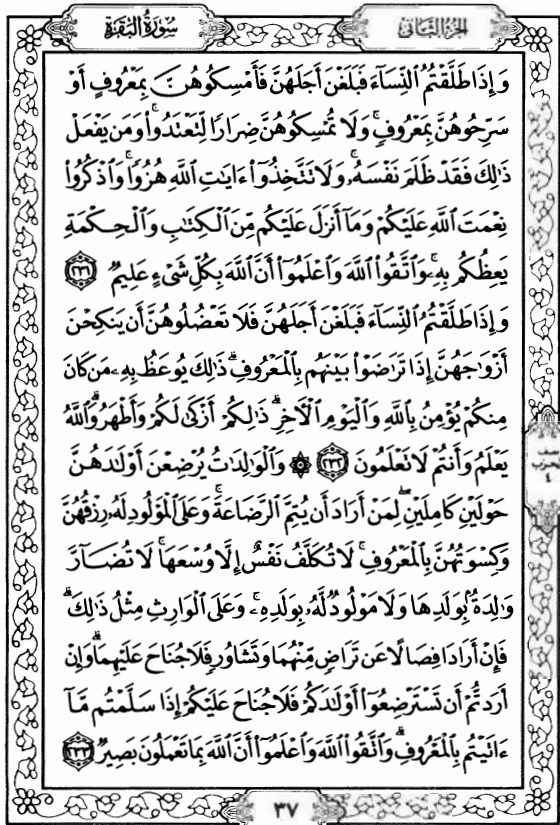 سُورَةُ البَقَرَةِ
الجُزْءُ الثَّانِي
وَإِذَا طَلَّقْتُمُ ٱلنِّسَآءَ فَبَلَغْنَ أَجَلَهُنَّ فَأَمْسِكُوهُنَّ بِمَعْرُوفٍ أَوْ
سَرِّحُوهُنَّ بِمَعْرُوفٍ ۚ وَلَا تُمْسِكُوهُنَّ ضِرَارًا لِّتَعْتَدُوا۟ ۚ وَمَن يَفْعَلْ
ذَٰلِكَ فَقَدْ ظَلَمَ نَفْسَهُۥ ۚ وَلَا تَتَّخِذُوٓا۟ ءَايَٰتِ ٱللَّهِ هُزُوًا ۚ وَٱذْكُرُوا۟
نِعْمَتَ ٱللَّهِ عَلَيْكُمْ وَمَآ أَنزَلَ عَلَيْكُم مِّنَ ٱلْكِتَٰبِ وَٱلْحِكْمَةِ
يَعِظُكُم بِهِۦ ۚ وَٱتَّقُوا۟ ٱللَّهَ وَٱعْلَمُوٓا۟ أَنَّ ٱللَّهَ بِكُلِّ شَىْءٍ عَلِيمٌ ٢٣١
وَإِذَا طَلَّقْتُمُ ٱلنِّسَآءَ فَبَلَغْنَ أَجَلَهُنَّ فَلَا تَعْضُلُوهُنَّ أَن يَنكِحْنَ
أَزْوَٰجَهُنَّ إِذَا تَرَٰضَوْا۟ بَيْنَهُم بِٱلْمَعْرُوفِ ۗ ذَٰلِكَ يُوعَظُ بِهِۦ مَن كَانَ
مِنكُمْ يُؤْمِنُ بِٱللَّهِ وَٱلْيَوْمِ ٱلْءَاخِرِ ۗ ذَٰلِكُمْ أَزْكَىٰ لَكُمْ وَأَطْهَرُ ۗ وَٱللَّهُ
يَعْلَمُ وَأَنتُمْ لَا تَعْلَمُونَ ٢٣٢ ۞ وَٱلْوَٰلِدَٰتُ يُرْضِعْنَ أَوْلَٰدَهُنَّ
حَوْلَيْنِ كَامِلَيْنِ ۖ لِمَنْ أَرَادَ أَن يُتِمَّ ٱلرَّضَاعَةَ ۚ وَعَلَى ٱلْمَوْلُودِ لَهُۥ رِزْقُهُنَّ
وَكِسْوَتُهُنَّ بِٱلْمَعْرُوفِ ۚ لَا تُكَلَّفُ نَفْسٌ إِلَّا وُسْعَهَا ۚ لَا تُضَآرَّ
وَٰلِدَةٌۢ بِوَلَدِهَا وَلَا مَوْلُودٌ لَّهُۥ بِوَلَدِهِۦ ۚ وَعَلَى ٱلْوَارِثِ مِثْلُ ذَٰلِكَ ۗ
فَإِنْ أَرَادَا فِصَالًا عَن تَرَاضٍ مِّنْهُمَا وَتَشَاوُرٍ فَلَا جُنَاحَ عَلَيْهِمَا ۗ وَإِنْ
أَرَدتُّمْ أَن تَسْتَرْضِعُوٓا۟ أَوْلَٰدَكُمْ فَلَا جُنَاحَ عَلَيْكُمْ إِذَا سَلَّمْتُم مَّآ
ءَاتَيْتُم بِٱلْمَعْرُوفِ ۗ وَٱتَّقُوا۟ ٱللَّهَ وَٱعْلَمُوٓا۟ أَنَّ ٱللَّهَ بِمَا تَعْمَلُونَ بَصِيرٌ ٢٣٣
نصف
الحزب
٤
٣٧